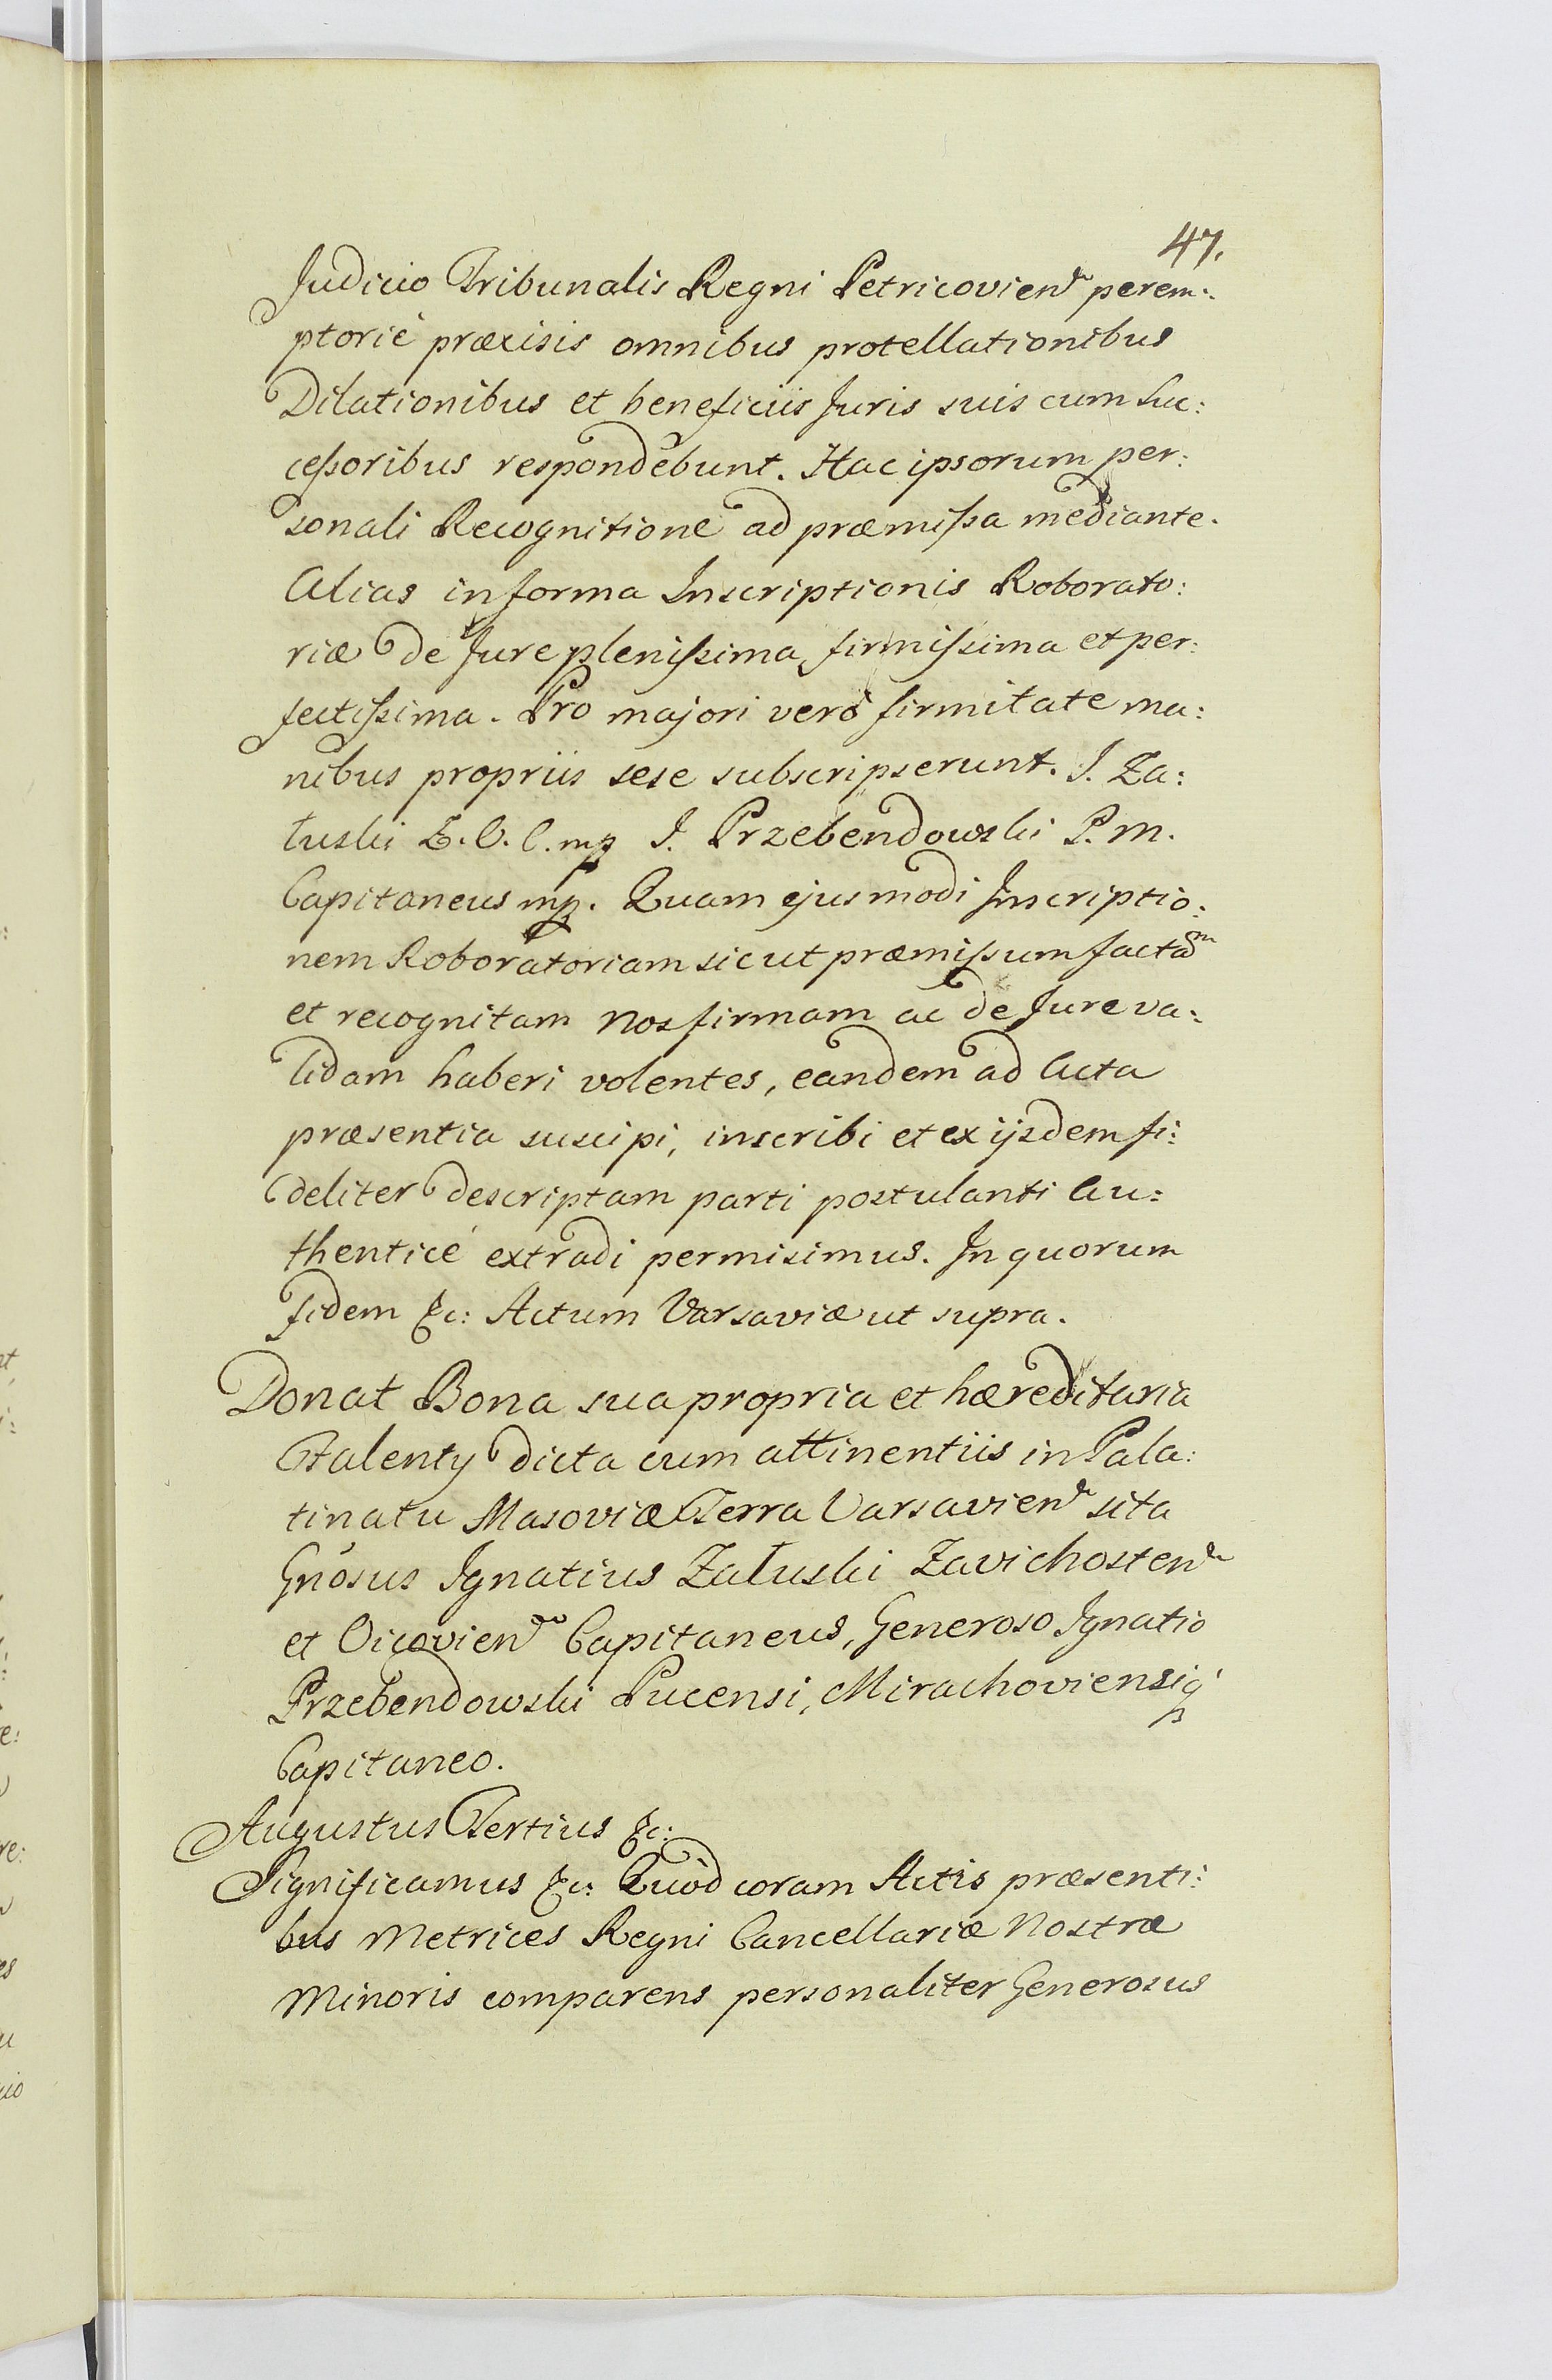 47.
Judicio Tribunalis Regni Petricovien perem:
ptorié præcisis omnibus protellationibus
Dilationibus et beneficiis Juris suis cum Suc:
ceßoribus respondebunt. Hac ipsorum per:
sonali Recognitione ad præmißa mediante.
Alias in forma Inscriptionis Roborato:
riæ de Jure plenißima, firmißima et per:
fectißima. Pro majori veró firmitate ma:
nibus propriis sese subscripserunt. I. Za:
łuski Z. O. C. mp I. Przebendowski P. M.
Capitaneus mp. Quam ejusmodi Inscriptio:
nem Roboratoriam sicut præmißum factam
et recognitam Nos firmam ac de Jure va:
lidam haberi volentes, eandem ad Acta
præsentia suscipi, inscribi et ex ijsdem fi:
deliter descriptam parti postulanti Au:
thenticé extradi permisimus. In quorum
fidem &c: Actum Varsaviæ ut supra.
Donat Bona sua propria et hæreditaria
Falenty dicta cum attinentiis in Pala:
tinatu Masoviæ Terra Varsavien sita
Gnósus Ignatius Załuski Zavichosten
et Oicovien Capitaneus, Generoso Ignatio
Przebendowski Pucensi, Mirachoviensiq
Capitaneo.
Augustus Tertius &c:
Significamus &c: Quòd coram Actis præsenti:
bus Metrices Regni Cancellariæ Nostræ
Minoris comparens personaliter Generosus